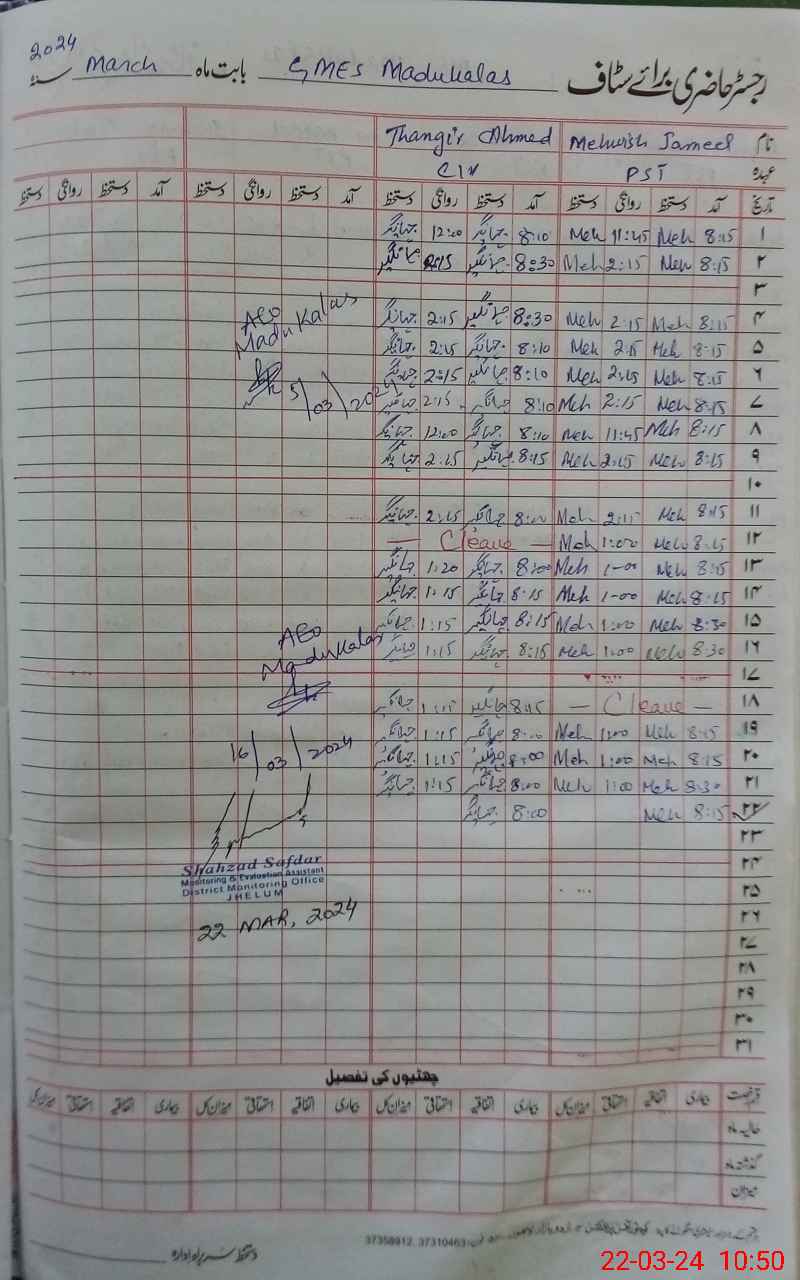 رجسٹر حاضری برائے سٹاف GMES Madukalas بابت ماہ March سنہ 2024
نام Mehwish Jameel Jhangir Ahmed
عہدہ PST C IV
تاریخ آمد دستخط روانگی دستخط آمد دستخط روانگی دستخط آمد دستخط روانگی دستخط آمد دستخط روانگی دستخط
۱ 8:15 Meh 11:45 Meh 8:10 جہانگیر 12:00 جہانگیر
۲ 8:15 Meh 2:15 Meh 8:30 جہانگیر 2:15 جہانگیر
۳
۴ 8:15 Meh 2:15 Meh 8:30 جہانگیر 2:15 جہانگیر
۵ 8:15 Meh 2:15 Meh 8:10 جہانگیر 2:15 جہانگیر
۶ 8:15 Meh 2:15 Meh 8:10 جہانگیر 2:15 جہانگیر
۷ 8:15 Meh 2:15 Meh 8:10 جہانگیر 2:15 جہانگیر
AEO
Madukalas
5/03/2024
۸ 8:15 Meh 11:45 Meh 8:10 جہانگیر 12:00 جہانگیر
۹ 8:15 Meh 2:15 Meh 8:15 جہانگیر 2:15 جہانگیر
۱۰
۱۱ 8:15 Meh 2:15 Meh 8:00 جہانگیر 2:15 جہانگیر
۱۲ 8:15 Meh 1:00 Meh — C leave —
۱۳ 8:15 Meh 1-00 Meh 8:00 جہانگیر 1:20 جہانگیر
۱۴ 8:15 Meh 1-00 Meh 8:15 جہانگیر 1:15 جہانگیر
۱۵ 8:30 Meh 1:00 Meh 8:15 جہانگیر 1:15 جہانگیر
۱۶ 8:30 Meh 1:00 Meh 8:15 جہانگیر 1:15 جہانگیر
۱۷
AEO
Madukalas
16/03/2024
۱۸ — C leave — 8:15 جہانگیر 1:15 جہانگیر
۱۹ 8:15 Meh 1:00 Meh 8:00 جہانگیر 1:15 جہانگیر
۲۰ 8:15 Meh 1:00 Meh 8:00 جہانگیر 1:15 جہانگیر
۲۱ 8:30 Meh 1:00 Meh 8:00 جہانگیر 1:15 جہانگیر
۲۲ 8:15 Meh 8:00 جہانگیر
۲۳
۲۴
۲۵
۲۶
۲۷
۲۸
۲۹
۳۰
۳۱
Shahzad Safdar
Monitoring & Evaluation Assistant
District Monitoring Office
JHELUM
22 MAR, 2024
چھٹیوں کی تفصیل
قسم رخصت بیماری اتفاقیہ استحقاقی میزان کل بیماری اتفاقیہ استحقاقی میزان کل بیماری اتفاقیہ استحقاقی میزان کل بیماری اتفاقیہ استحقاقی میزان کل
حالیہ ماہ
گذشتہ ماہ
میزان
37358912, 37310463
دستخط سربراہ ادارہ
22-03-24 10:50